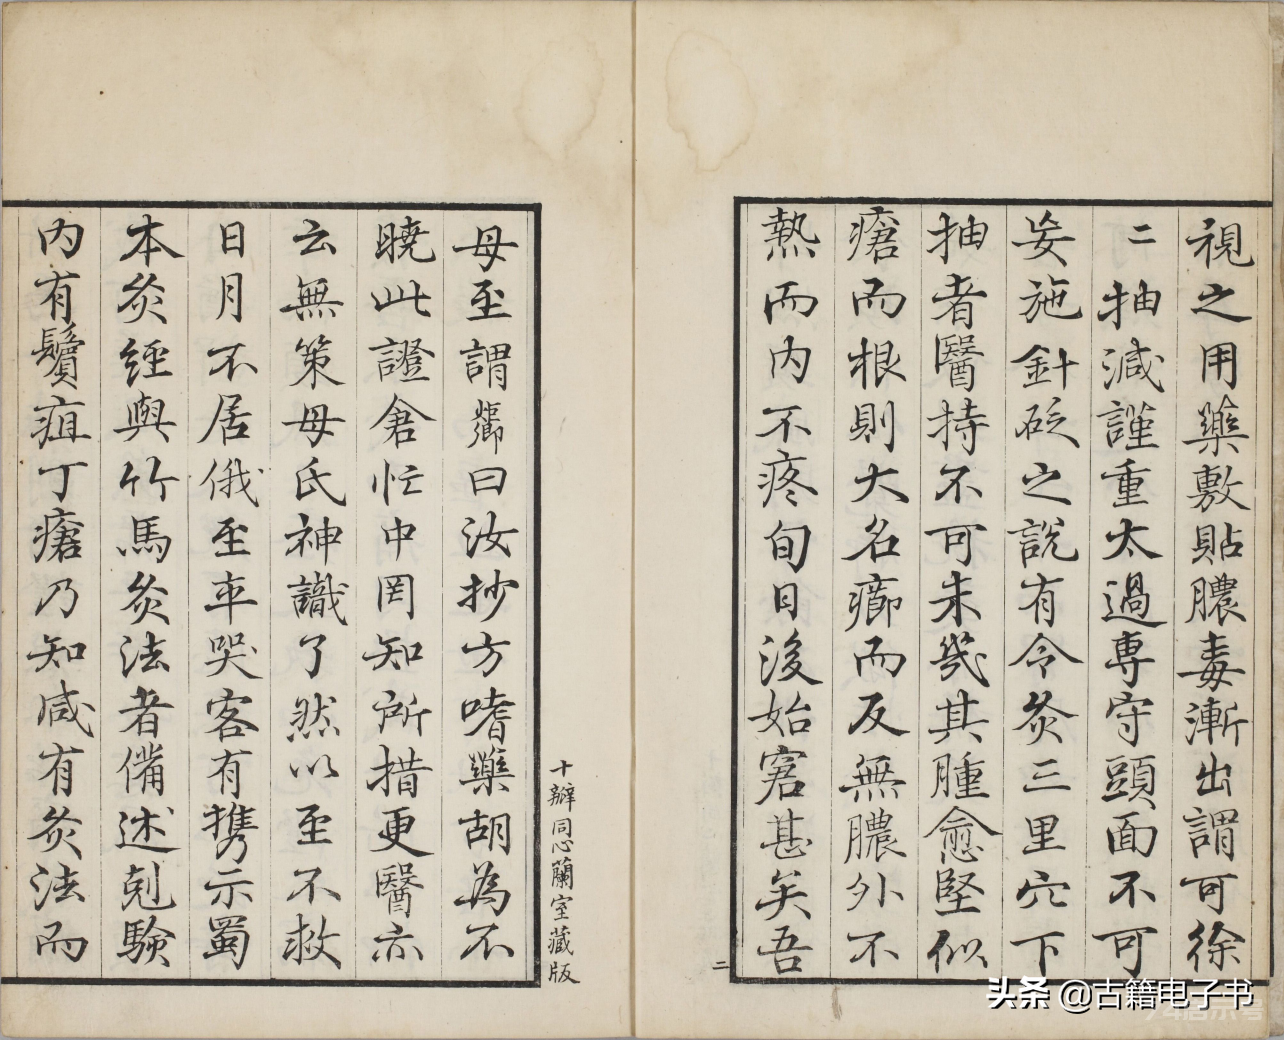 視之用藥敷貼膿毒漸出謂可徐
二抽減謹重太過専守頭面不可
妄施針砭之說有令灸三里穴下
抽者醫持不可未幾其腫愈堅似
瘡而根則大名癤而反無膿外不
熱而内不疼旬日後始窘甚矣吾
二
母至謂卿曰汝抄方嗜藥胡為不
曉此證倉忙中罔知所措更醫亦
云無策母氏神識了然以至不救
日月不居俄至卒哭客有携示蜀
本灸經與竹馬灸法者備述剋驗
内有鬢疽丁瘡乃知咸有灸法而
十瓣同心蘭室藏版
头条 @古籍电子书